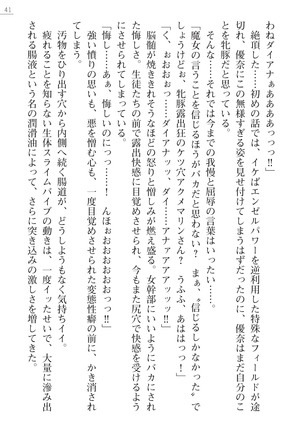 41
わねダイアナぁぁああああっっっ!!
絶頂した……初めの話では、イケばエンゼルパワーを逆利用した特殊なフィールドが途
切れ、優奈にこの無様すぎる姿を見せ付けてしまうはずだったのに、優奈はまだ自分のこ
とを牝豚だと思っている。
そんな……それでは今までの我慢と屈辱の言葉はいったい……。
「魔女の言うことを信じるほうがバカだと思わない? まぁ、〝信じるしかなかった〟で
しょうけどぉ、牝豚露出狂のケツ穴アクアメマリンさん? うふふ、あははっっ!」
「く、ぉぉおおっっ、ダイアナッッ、ダイ……アナァアアアッッ、あはぁああっっ!」
脳髄が焼ききれそうなほどの怒りと憎しみが燃え盛る。女幹部にいいようにバカにされ
る悔しさ、生徒たちの前で露出快感に目覚めさせられ、今もまた尻穴で快感を受けるよう
にさせられてしまっている。
「悔し……悔しいのにっっ……! んほぉおおおおおっっ!」
強い憤りの思いも、悪を憎む心も、一度目覚めさせられた変態性癖の前に、かき消され
てしまう。
汚物をひり出す穴から内側へと続く腸道が、どうしようもなく気持ちイイ。
疲れることを知らない生体スライムバイブの動きは、一度イッたせいで、大量に滲み出
される腸液という名の潤滑油によって、さらに突き込みの激しさを増してきた。